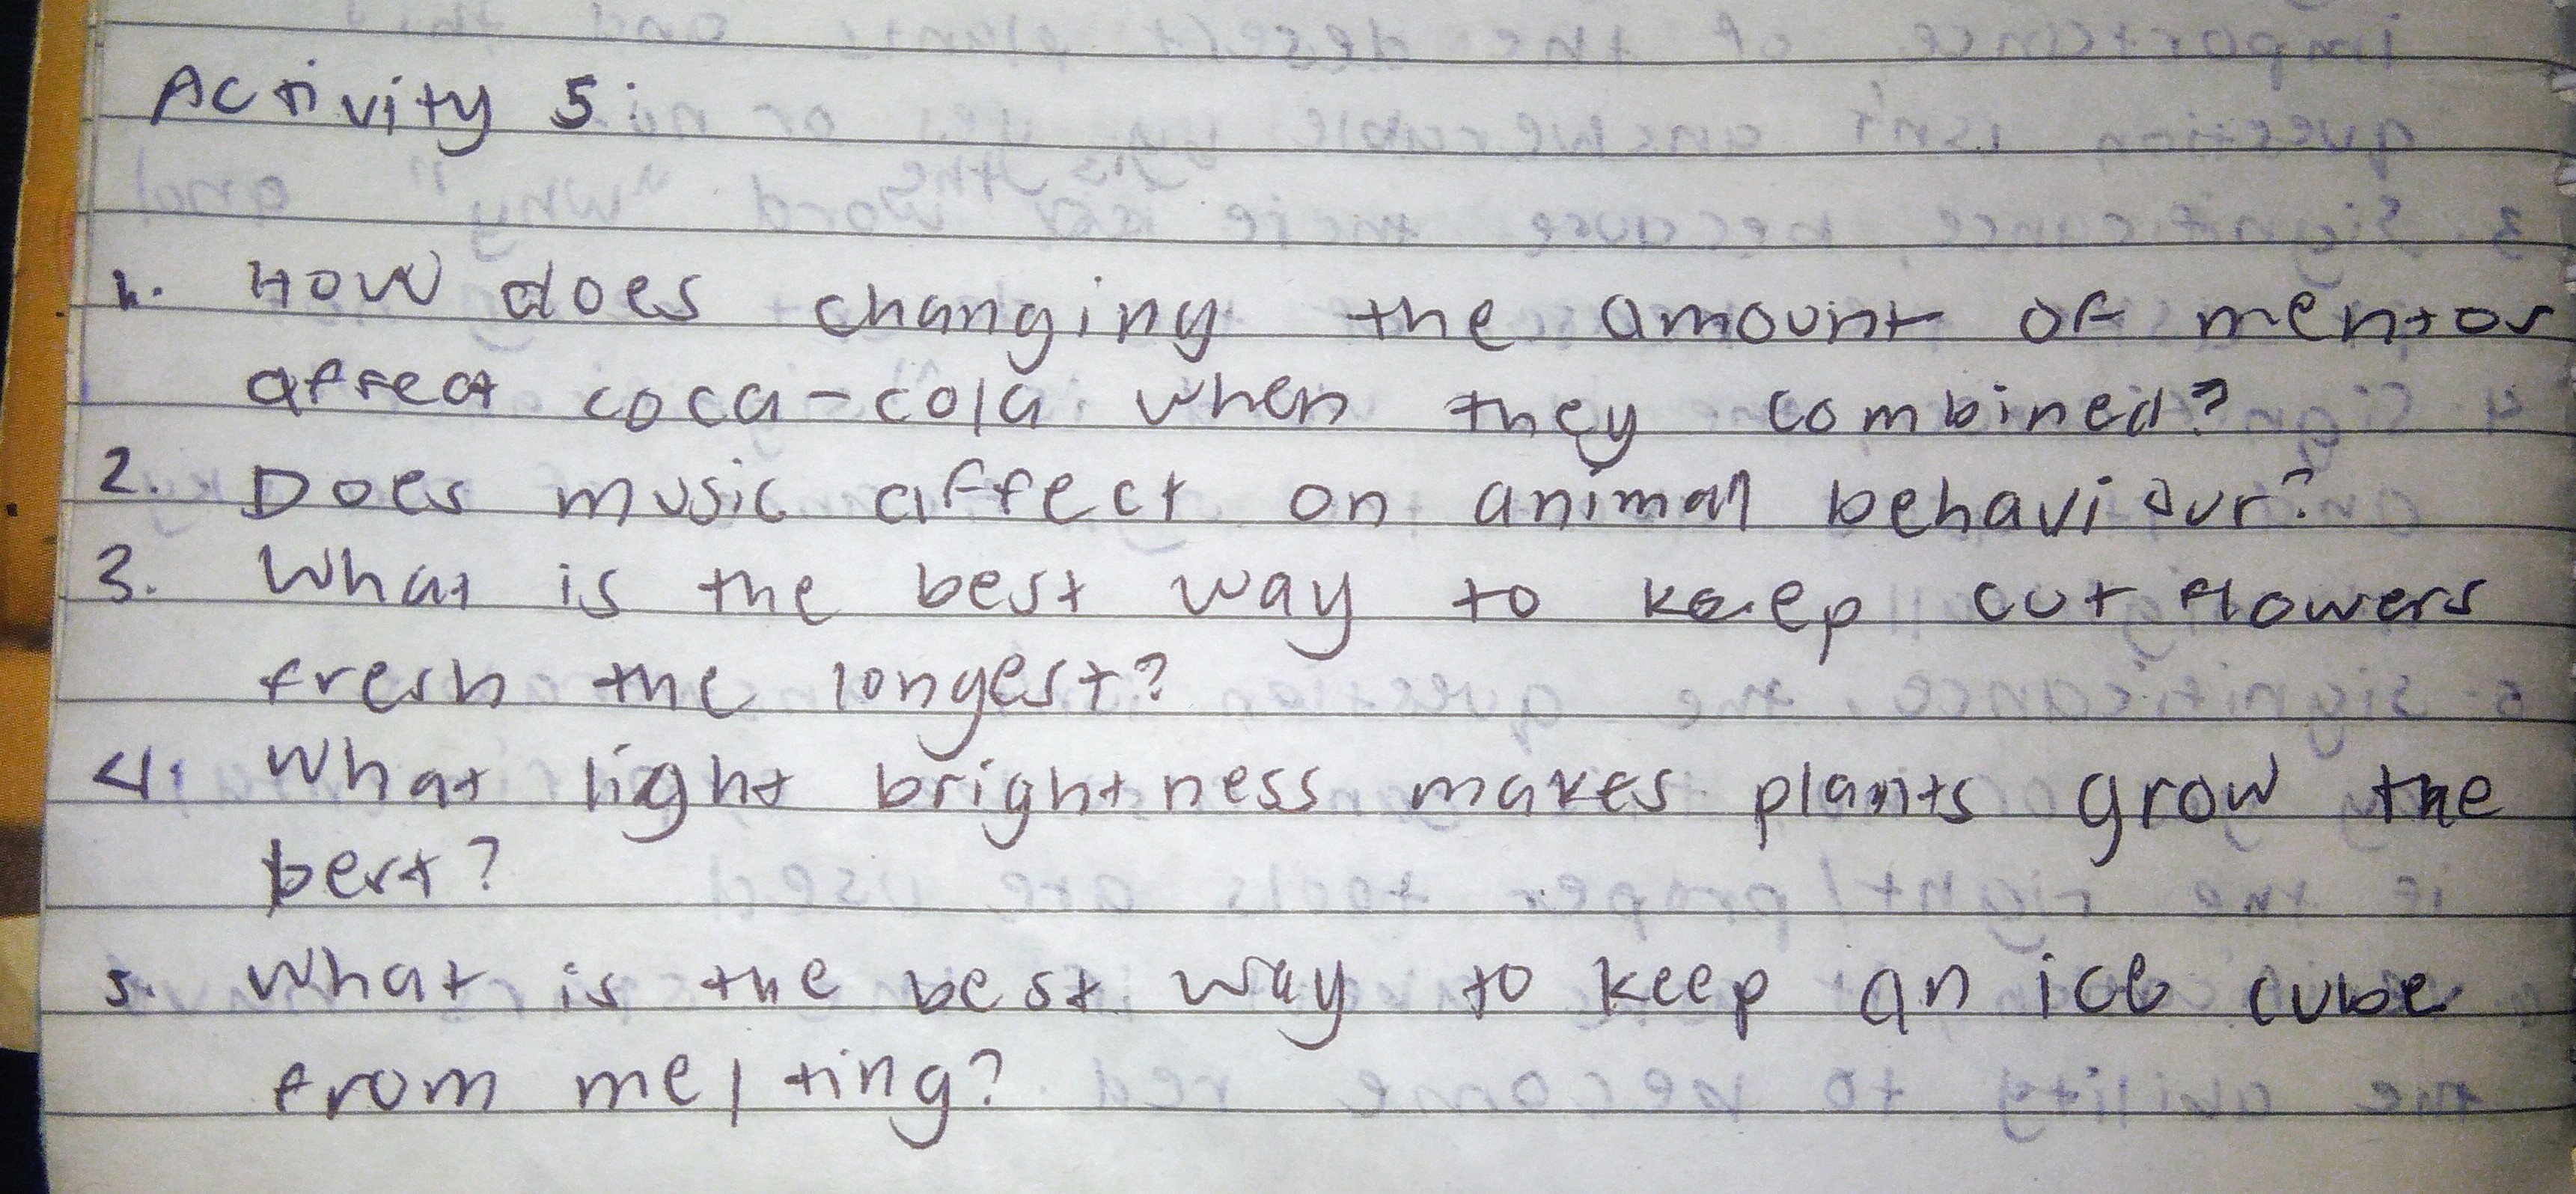 Activity 5:
1. How does changing the amount of mentos
affect coca-cola when they combined?
2. Does music affect on animal behaviour?
3. What is the best way to keep cut flowers
fresh the longest?
4. What light brightness makes plants grow the
best?
5. What is the best way to keep an ice cube
from melting?